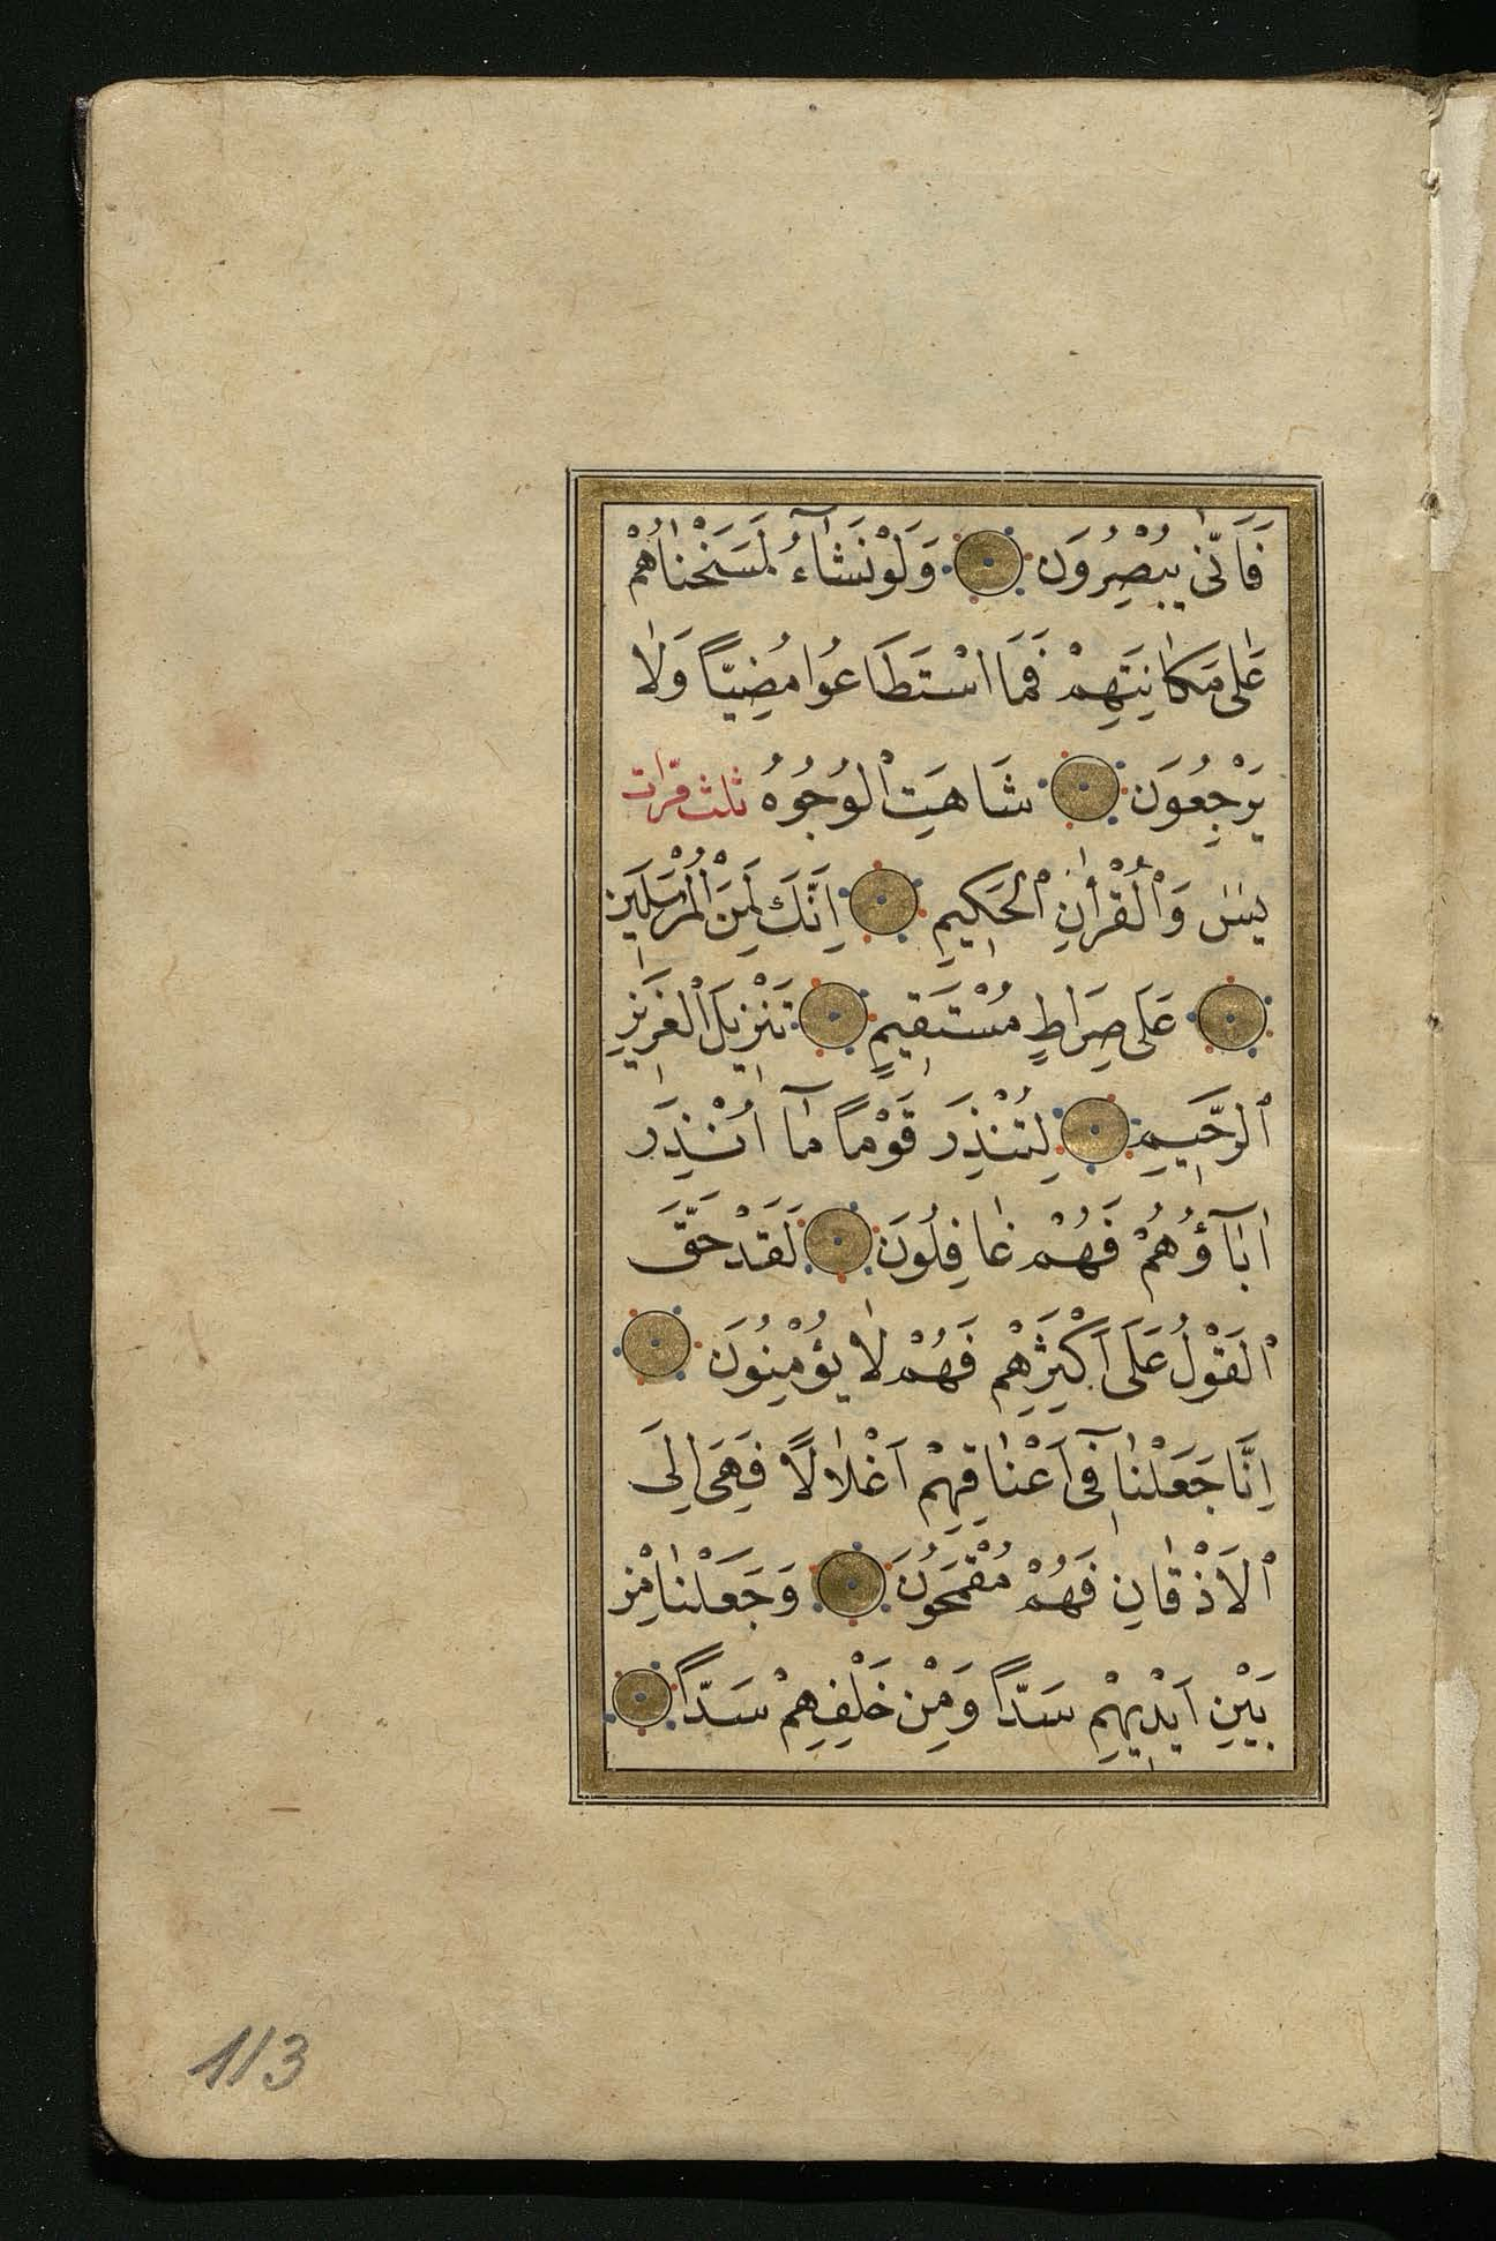 فَاَنّٰى يُبْصِرُونَ وَلَوْ نَشَٓاءُ لَمَسَخْنَاهُمْ
عَلٰى مَكَانَتِهِمْ فَمَا اسْتَطَاعُوا مُضِيًّا وَلَا
يَرْجِعُونَ شَاهَتِ الْوُجُوهُ ثلث مرّات
يٰسٓ وَالْقُرْاٰنِ الْحَكِيمِ اِنَّكَ لَمِنَ الْمُرْسَلِينَ
عَلَى صِرَاطٍ مُسْتَقِيمٍ تَنْزِيلَ الْعَزِيزِ
الرَّحِيمِ لِتُنْذِرَ قَوْمًا مَٓا اُنْذِرَ
اٰبَٓاؤُهُمْ فَهُمْ غَافِلُونَ لَقَدْ حَقَّ
الْقَوْلُ عَلَى اَكْثَرِهِمْ فَهُمْ لَا يُؤْمِنُونَ
اِنَّا جَعَلْنَا فِٓى اَعْنَاقِهِمْ اَغْلَالًا فَهِىَ اِلَى
الْاَذْقَانِ فَهُمْ مُقْمَحُونَ وَجَعَلْنَا مِنْ
بَيْنِ اَيْدِيهِمْ سَدًّا وَمِنْ خَلْفِهِمْ سَدًّا
113